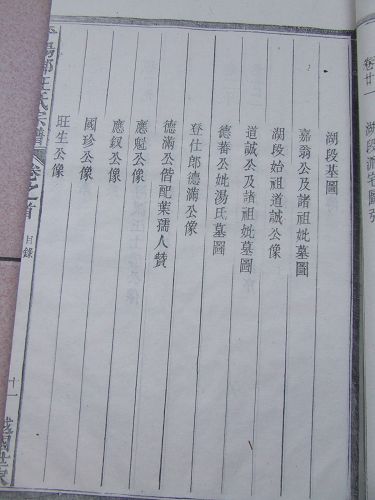 卷廿一
湖段墓圖
嘉翁公及諸祖妣墓圖
湖段始祖道誠公像
道誠公及諸祖妣墓圖
德蕃公妣湯氏墓圖
登仕郎德滿公像
德滿公偕配葉孺人贊
應魁公像
應釵公像
國珍公像
旺生公像
汪氏宗譜
卷之首
目錄
十一